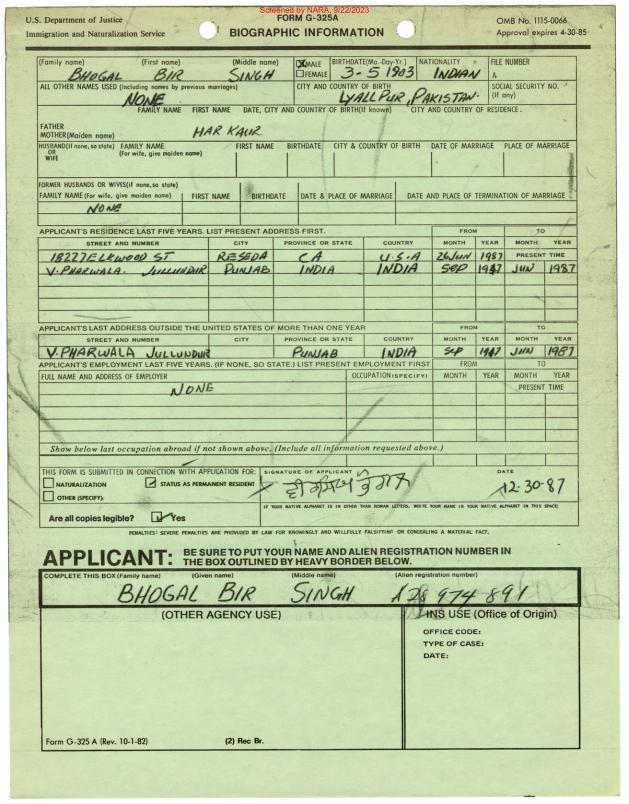 Screened by NARA, 9/22/2023
U.S. Department of Justice
Immigration and Naturalization Service
FORM G-325A
BIOGRAPHIC INFORMATION
OMB No. 1115-0066
Approval expires 4-30-85
(Family name) (First name) (Middle name)
BHOGAL BIR SINGH
X MALE
FEMALE
BIRTHDATE(Mo.-Day-Yr.)
3-5 1903
NATIONALITY
INDIAN
FILE NUMBER
A
ALL OTHER NAMES USED (Including names by previous marriages)
NONE
CITY AND COUNTRY OF BIRTH
LYALLPUR, PAKISTAN.
SOCIAL SECURITY NO.
(If any)
FAMILY NAME FIRST NAME DATE, CITY AND COUNTRY OF BIRTH(If known) CITY AND COUNTRY OF RESIDENCE.
FATHER
MOTHER(Maiden name)
HAR KAUR
HUSBAND(If none, so state) FAMILY NAME FIRST NAME BIRTHDATE CITY & COUNTRY OF BIRTH DATE OF MARRIAGE PLACE OF MARRIAGE
OR (For wife, give maiden name)
WIFE
FORMER HUSBANDS OR WIVES(if none, so state)
FAMILY NAME (For wife, give maiden name) FIRST NAME BIRTHDATE DATE & PLACE OF MARRIAGE DATE AND PLACE OF TERMINATION OF MARRIAGE
NONE
APPLICANT'S RESIDENCE LAST FIVE YEARS. LIST PRESENT ADDRESS FIRST. FROM TO
STREET AND NUMBER CITY PROVINCE OR STATE COUNTRY MONTH YEAR MONTH YEAR
18227 ELKWOOD ST RESEDA CA U.S.A 26 JUN 1987 PRESENT TIME
V. PHARWALA. JULLUNDUR PUNJAB INDIA INDIA SEP 1947 JUN 1987
APPLICANT'S LAST ADDRESS OUTSIDE THE UNITED STATES OF MORE THAN ONE YEAR FROM TO
STREET AND NUMBER CITY PROVINCE OR STATE COUNTRY MONTH YEAR MONTH YEAR
V. PHARWALA JULLUNDUR PUNJAB INDIA SEP 1947 JUN 1987
APPLICANT'S EMPLOYMENT LAST FIVE YEARS. (IF NONE, SO STATE.) LIST PRESENT EMPLOYMENT FIRST FROM TO
FULL NAME AND ADDRESS OF EMPLOYER OCCUPATION(SPECIFY) MONTH YEAR MONTH YEAR
NONE PRESENT TIME
Show below last occupation abroad if not shown above. (Include all information requested above.)
THIS FORM IS SUBMITTED IN CONNECTION WITH APPLICATION FOR:
NATURALIZATION STATUS AS PERMANENT RESIDENT
OTHER (SPECIFY):
SIGNATURE OF APPLICANT
DATE
12-30-87
Are all copies legible? Yes
IF YOUR NATIVE ALPHABET IS IN OTHER THAN ROMAN LETTERS, WRITE YOUR NAME IN YOUR NATIVE ALPHABET IN THIS SPACE:
PENALTIES: SEVERE PENALTIES ARE PROVIDED BY LAW FOR KNOWINGLY AND WILLFULLY FALSIFYING OR CONCEALING A MATERIAL FACT.
APPLICANT: BE SURE TO PUT YOUR NAME AND ALIEN REGISTRATION NUMBER IN
THE BOX OUTLINED BY HEAVY BORDER BELOW.
COMPLETE THIS BOX (Family name) (Given name) (Middle name) (Alien registration number)
BHOGAL BIR SINGH A28 974 891
(OTHER AGENCY USE)
INS USE (Office of Origin)
OFFICE CODE:
TYPE OF CASE:
DATE:
Form G-325 A (Rev. 10-1-82) (2) Rec Br.